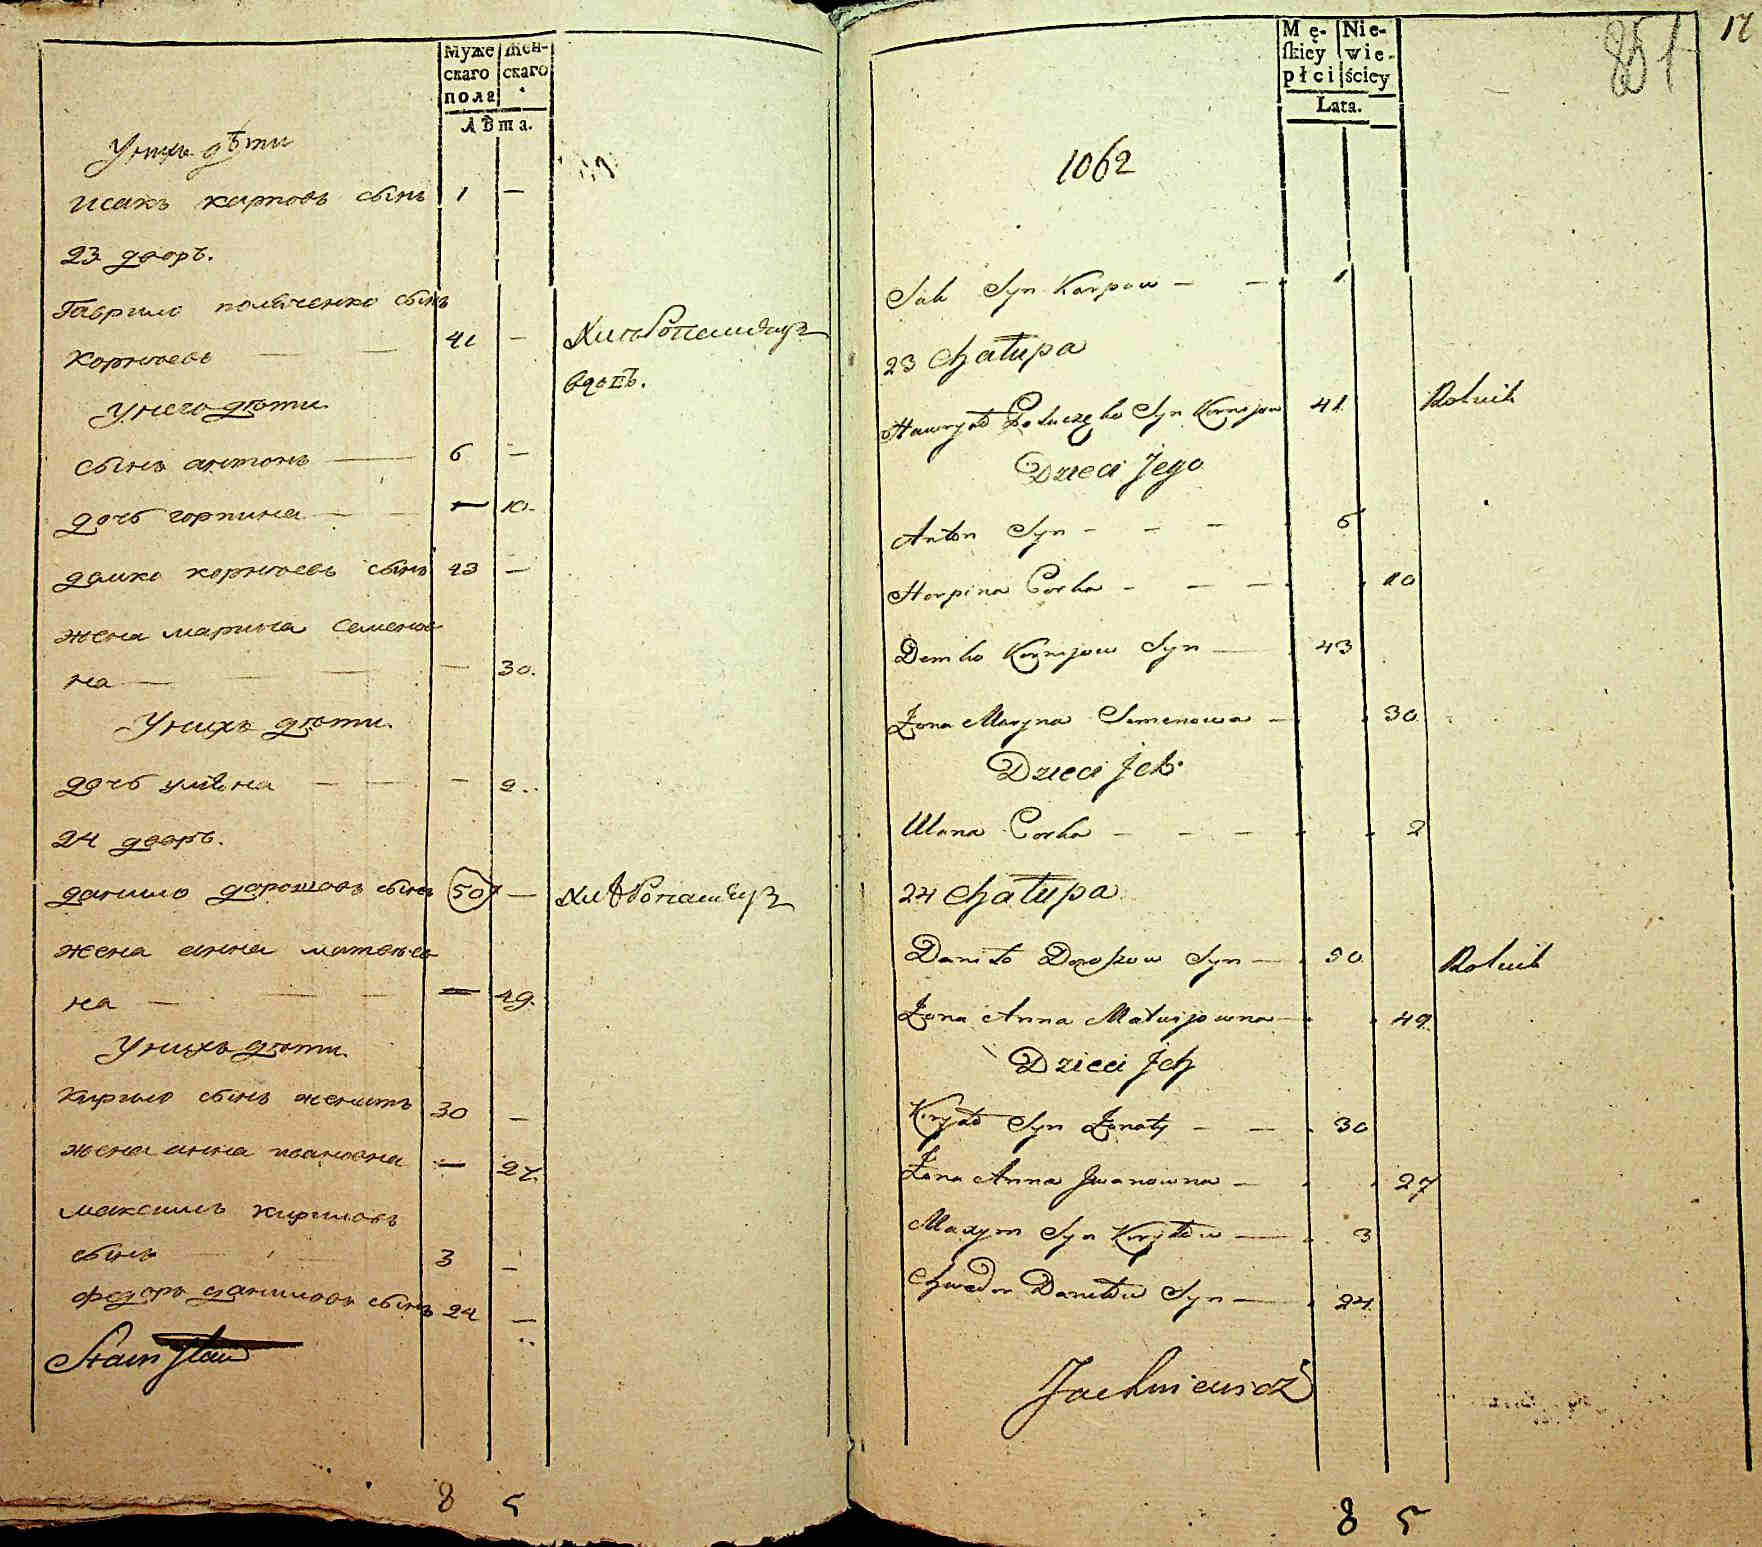 Муже
скаго
пола
Жен-
скаго
Лѣта.
У нихъ дѣти
исакъ карповъ сынъ 1 —
23 дворъ.
Гаврило полвченко сынъ
корнѣевъ — — 41 — хлѣбопашецъ
вдовъ.
У него дѣти
сынъ антонъ — 6 —
дочь горпина — — — 10.
демко корнѣевъ сынъ 43 —
жена марина семенов
на — — — — 30.
У нихъ дѣти.
дочь уляна — — — 2..
24 дворъ.
данило дорошовъ сынъ 50 — хлѣбопашецъ
жена анна матвѣев
на — — — — 49.
У нихъ дѣти.
кирило сынъ женатъ 30 —
жена анна ивановна — 27.
максимъ кириловъ
сынъ — — 3 —
федоръ даниловъ сынъ 24 —
Stanisław
8 5
Mę-
ſkiey
płci
Nie-
wie-
ściey
Lata.
851
17
1062
Syn Karpow — — 1
23 Chałupa
Hawryło Syn Kornijow 41 Rolnik
Dzieci Jego
Anton Syn — — — 6
Horpina Corka — — — 10
Demko Kornijow Syn — 43
Żona Maryna Semenowa — 30
Dzieci Jch
Ulana Corka — — — 2
24 Chałupa
Daniło Doroszow Syn — 50 Rolnik
Żona Anna Matwijowna — 49.
Dzieci Jch
Kiryło Syn Żonaty — — 30
Żona Anna Jwanowna — 27
Maxym Syn Kiryłow — 3
Chwedor Daniłow Syn — 24
Jachniewicz
8 5